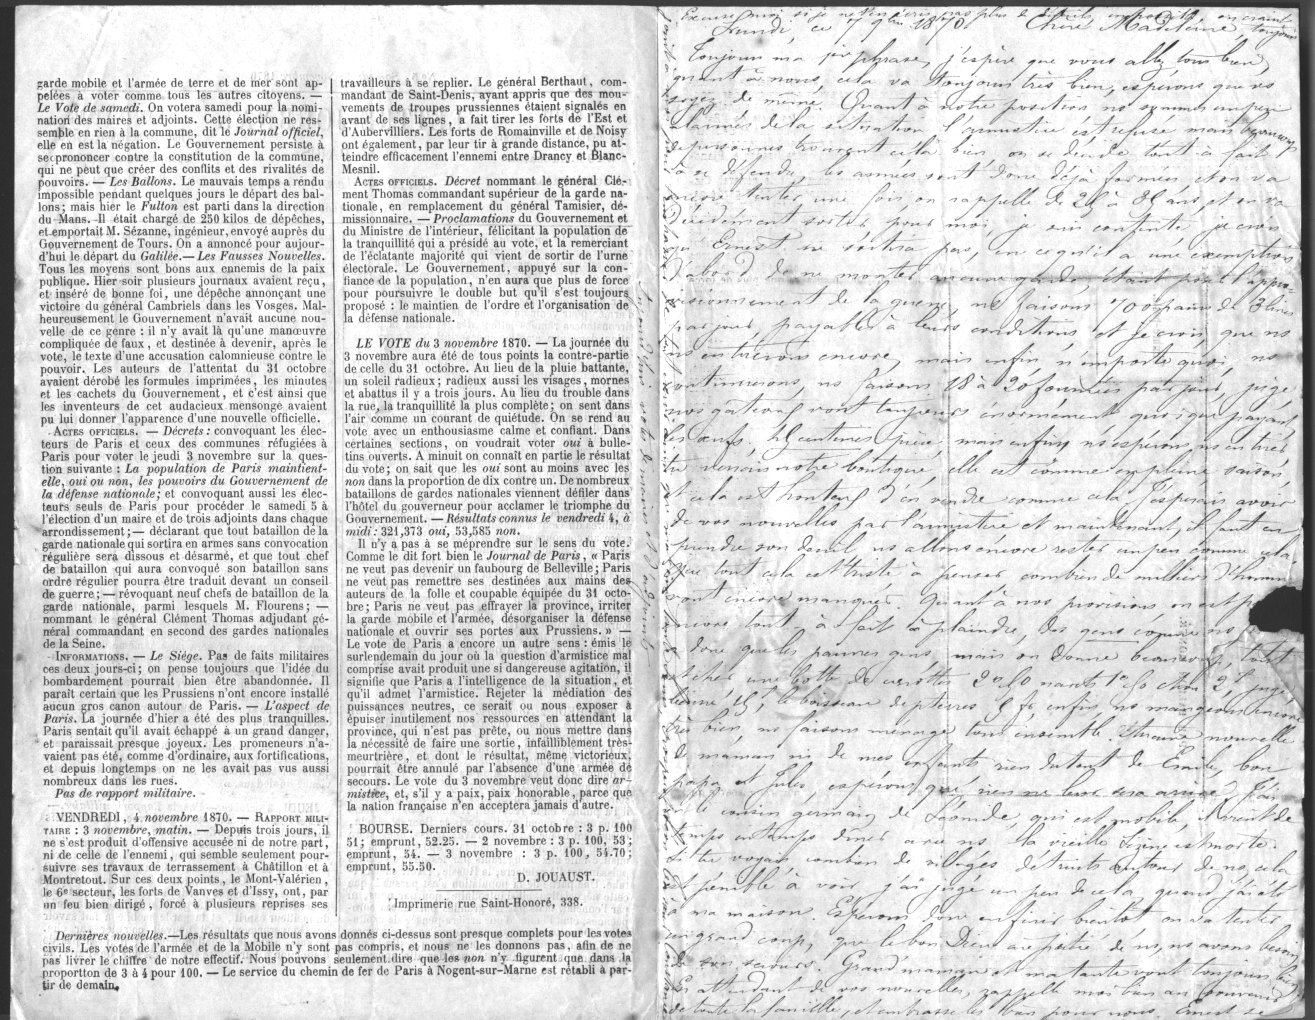 garde mobile et l'armée de terre et de mer sont ap-
pelées à voter comme tous les autres citoyens. —
Le Vote de samedi. On votera samedi pour la nomi-
nation des maires et adjoints. Cette élection ne res-
semble en rien à la commune, dit le Journal officiel,
elle en est la négation. Le Gouvernement persiste à
se prononcer contre la constitution de la commune,
qui ne peut que créer des conflits et des rivalités de
pouvoirs. — Les Ballons. Le mauvais temps a rendu
impossible pendant quelques jours le départ des bal-
lons; mais hier le Fulton est parti dans la direction
du Mans. Il était chargé de 250 kilos de dépêches,
et emportait M. Sézanne, ingénieur, envoyé auprès du
Gouvernement de Tours. On a annoncé pour aujour-
d'hui le départ du Galilée. — Les Fausses Nouvelles.
Tous les moyens sont bons aux ennemis de la paix
publique. Hier soir plusieurs journaux avaient reçu,
et inséré de bonne foi, une dépêche annonçant une
victoire du général Cambriels dans les Vosges. Mal-
heureusement le Gouvernement n'avait aucune nou-
velle de ce genre : il n'y avait là qu'une manœuvre
compliquée de faux, et destinée à devenir, après le
vote, le texte d'une accusation calomnieuse contre le
pouvoir. Les auteurs de l'attentat du 31 octobre
avaient dérobé les formules imprimées, les minutes
et les cachets du Gouvernement, et c'est ainsi que
les inventeurs de cet audacieux mensonge avaient
pu lui donner l'apparence d'une nouvelle officielle.
ACTES OFFICIELS. — Décrets : convoquant les élec-
teurs de Paris et ceux des communes réfugiées à
Paris pour voter le jeudi 3 novembre sur la ques-
tion suivante : La population de Paris maintient-
elle, oui ou non, les pouvoirs du Gouvernement de
la défense nationale; et convoquant aussi les élec-
teurs seuls de Paris pour procéder le samedi 5 à
l'élection d'un maire et de trois adjoints dans chaque
arrondissement; — déclarant que tout bataillon de la
garde nationale qui sortira en armes sans convocation
régulière sera dissous et désarmé, et que tout chef
de bataillon qui aura convoqué son bataillon sans
ordre régulier pourra être traduit devant un conseil
de guerre; — révoquant neuf chefs de bataillon de la
garde nationale, parmi lesquels M. Flourens; —
nommant le général Clément Thomas adjudant gé-
néral commandant en second des gardes nationales
de la Seine.
INFORMATIONS. — Le Siége. Pas de faits militaires
ces deux jours-ci; on pense toujours que l'idée du
bombardement pourrait bien être abandonnée. Il
paraît certain que les Prussiens n'ont encore installé
aucun gros canon autour de Paris. — L'aspect de
Paris. La journée d'hier a été des plus tranquilles.
Paris sentait qu'il avait échappé à un grand danger,
et paraissait presque joyeux. Les promeneurs n'a-
vaient pas été, comme d'ordinaire, aux fortifications,
et depuis longtemps on ne les avait pas vus aussi
nombreux dans les rues.
Pas de rapport militaire.
VENDREDI, 4 novembre 1870. — RAPPORT MILI-
TAIRE : 3 novembre, matin. — Depuis trois jours, il
ne s'est produit d'offensive accusée ni de notre part,
ni de celle de l'ennemi, qui semble seulement pour-
suivre ses travaux de terrassement à Châtillon et à
Montretout. Sur ces deux points, le Mont-Valérien,
le 6e secteur, les forts de Vanves et d'Issy, ont, par
un feu bien dirigé, forcé à plusieurs reprises ses
travailleurs à se replier. Le général Berthaut, com-
mandant de Saint-Denis, ayant appris que des mou-
vements de troupes prussiennes étaient signalés en
avant de ses lignes, a fait tirer les forts de l'Est et
d'Aubervilliers. Les forts de Romainville et de Noisy
ont également, par leur tir à grande distance, pu at-
teindre efficacement l'ennemi entre Drancy et Blanc-
Mesnil.
ACTES OFFICIELS. Décret nommant le général Clé-
ment Thomas commandant supérieur de la garde na-
tionale, en remplacement du général Tamisier, dé-
missionnaire. — Proclamations du Gouvernement et
du Ministre de l'intérieur, félicitant la population de
la tranquilité qui a présidé au vote, et la remerciant
de l'éclatante majorité qui vient de sortir de l'urne
électorale. Le Gouvernement, appuyé sur la con-
fiance de la population, n'en aura que plus de force
pour poursuivre le double but qu'il s'est toujours
proposé : le maintien de l'ordre et l'organisation de
la défense nationale.
LE VOTE du 3 novembre 1870. — La journée du
3 novembre aura été de tous points la contre-partie
de celle du 31 octobre. Au lieu de la pluie battante,
un soleil radieux; radieux aussi les visages, mornes
et abattus il y a trois jours. Au lieu du trouble dans
la rue, la tranquillité la plus complète; on sent dans
l'air comme un courant de quiétude. On se rend au
vote avec un enthousiasme calme et confiant. Dans
certaines sections, on voudrait voter oui à bulle-
tins ouverts. A minuit on connaît en partie le résultat
du vote; on sait que les oui sont au moins avec les
non dans la proportion de dix contre un. De nombreux
bataillons de gardes nationales viennent défiler dans
l'hôtel du gouverneur pour acclamer le triomphe du
Gouvernement. — Résultats connus le vendredi 4, à
midi : 321,373 oui, 53,585 non.
Il n'y a pas à se méprendre sur le sens du vote.
Comme le dit fort bien le Journal de Paris, « Paris
ne veut pas devenir un faubourg de Belleville; Paris
ne veut pas remettre ses destinées aux mains des
auteurs de la folle et coupable équipée du 31 octo-
bre; Paris ne veut pas effrayer la province, irriter
la garde mobile et l'armée, désorganiser la défense
nationale et ouvrir ses portes aux Prussiens. » —
Le vote de Paris a encore un autre sens : émis le
surlendemain du jour où la question d'armistice mal
comprise avait produit une si dangereuse agitation, il
signifie que Paris a l'intelligence de la situation, et
qu'il admet l'armistice. Rejeter la médiation des
puissances neutres, ce serait ou nous exposer à
épuiser inutilement nos ressources en attendant la
province, qui n'est pas prête, ou nous mettre dans
la nécessité de faire une sortie, infailliblement très-
meurtrière, et dont le résultat, même victorieux,
pourrait être annulé par l'absence d'une armée de
secours. Le vote du 3 novembre veut donc dire ar-
mistice, et, s'il y a paix, paix honorable, parce que
la nation française n'en acceptera jamais d'autre.
BOURSE. Derniers cours. 31 octobre : 3 p. 100
51; emprunt, 52.25. — 2 novembre : 3 p. 100, 53;
emprunt, 54. — 3 novembre : 3 p. 100, 54.70;
emprunt, 55.50.
D. JOUAUST.
Imprimerie rue Saint-Honoré, 338.
Dernières nouvelles. — Les résultats que nous avons donnés ci-dessus sont presque complets pour les votes
civils. Les votes de l'armée et de la Mobile n'y sont pas compris, et nous ne les donnons pas, afin de ne
pas livrer le chiffre de notre effectif. Nous pouvons seulement dire que les non n'y figurent que dans la
proportion de 3 à 4 pour 100. — Le service du chemin de fer de Paris à Nogent-sur-Marne est rétabli à par-
tir de demain.
Lundi, ce 7 9bre 1870. Chère Madeleine,
Toujours ma phrase, j'espère que vous allez tous bien,
quant à nous, cela va toujours très bien, espérons que vs
soyez de même. Quant à notre position ns sommes un peu
alarmés de la situation l'armistice est refusé mais beaucoup
de personnes trouvent cela bien on se décide tout à fait
à se défendre, les armées sont donc déjà formées et on va
encore tenter une fois, on rappelle de 25 à 35 ans et on va
décidément sortir pour moi je suis contente je crois
qu'Ernest ne sortira pas, en ce qu'il a une exemption
d'abord de ne monter aucune garde étant pour l'appro-
visionnement de la guerre, ns faisons 700 pains de 3 livres
par jour, payable à leurs conditions et je crois que ns
ns en tirerons encore, mais enfin n'importe quoi, ns
continuerons, ns faisons 18 à 20 fournées par jour, juge
nos gâteaux vont toujours énormément quoique payant
les œufs centimes pièce mais enfin ns espérons ns en tirer
notre boutique, elle est comme en pleine saison
et cela est honteux d'en vendre comme cela J'espérais avoir
de vos nouvelles par l'armistice et maintenant il faut en
prendre son deuil ns allons encore rester un peu comme cela
Que tout cela est triste à penser combien de milliers d'hommes
vont encore manquer. Quant à nos provisions on est p
encore tout à fait à plaindre, des gens comme ns
donc que les pauvres gens, mais on donne beaucoup, tout
est cher une botte de carottes 2f 50 navets 1f 50 chou 2f juge
le boisseau de pommes de terre enfin ns mangeons encore
très bien, ns faisons ménage tous ensemble. Aucune nouvelle
de maman ni de mes enfants rien autant de Emile, bon
papa et Jules, espérons que rien ne leur sera arrivé. J'ai
vu le cousin germain de Léonide qui est mobile, il vient de
temps en temps dîner avec ns la vieille est morte.
Si tu voyais combien de villages détruits autour de ns, cela
est pénible à voir, j'ai jugé un peu de cela quand j'ai été
à ma maison. Espérons d'en finir bientôt on va tenter
un grand coup, que le bon Dieu aie pitié de ns, ns avons besoin
de son secours. Grand'maman et ma tante vont toujours bien
En attendant de vos nouvelles, rappelle moi bien au souvenir
de toute la famille, et embrasse les bien pour nous. Ernest se